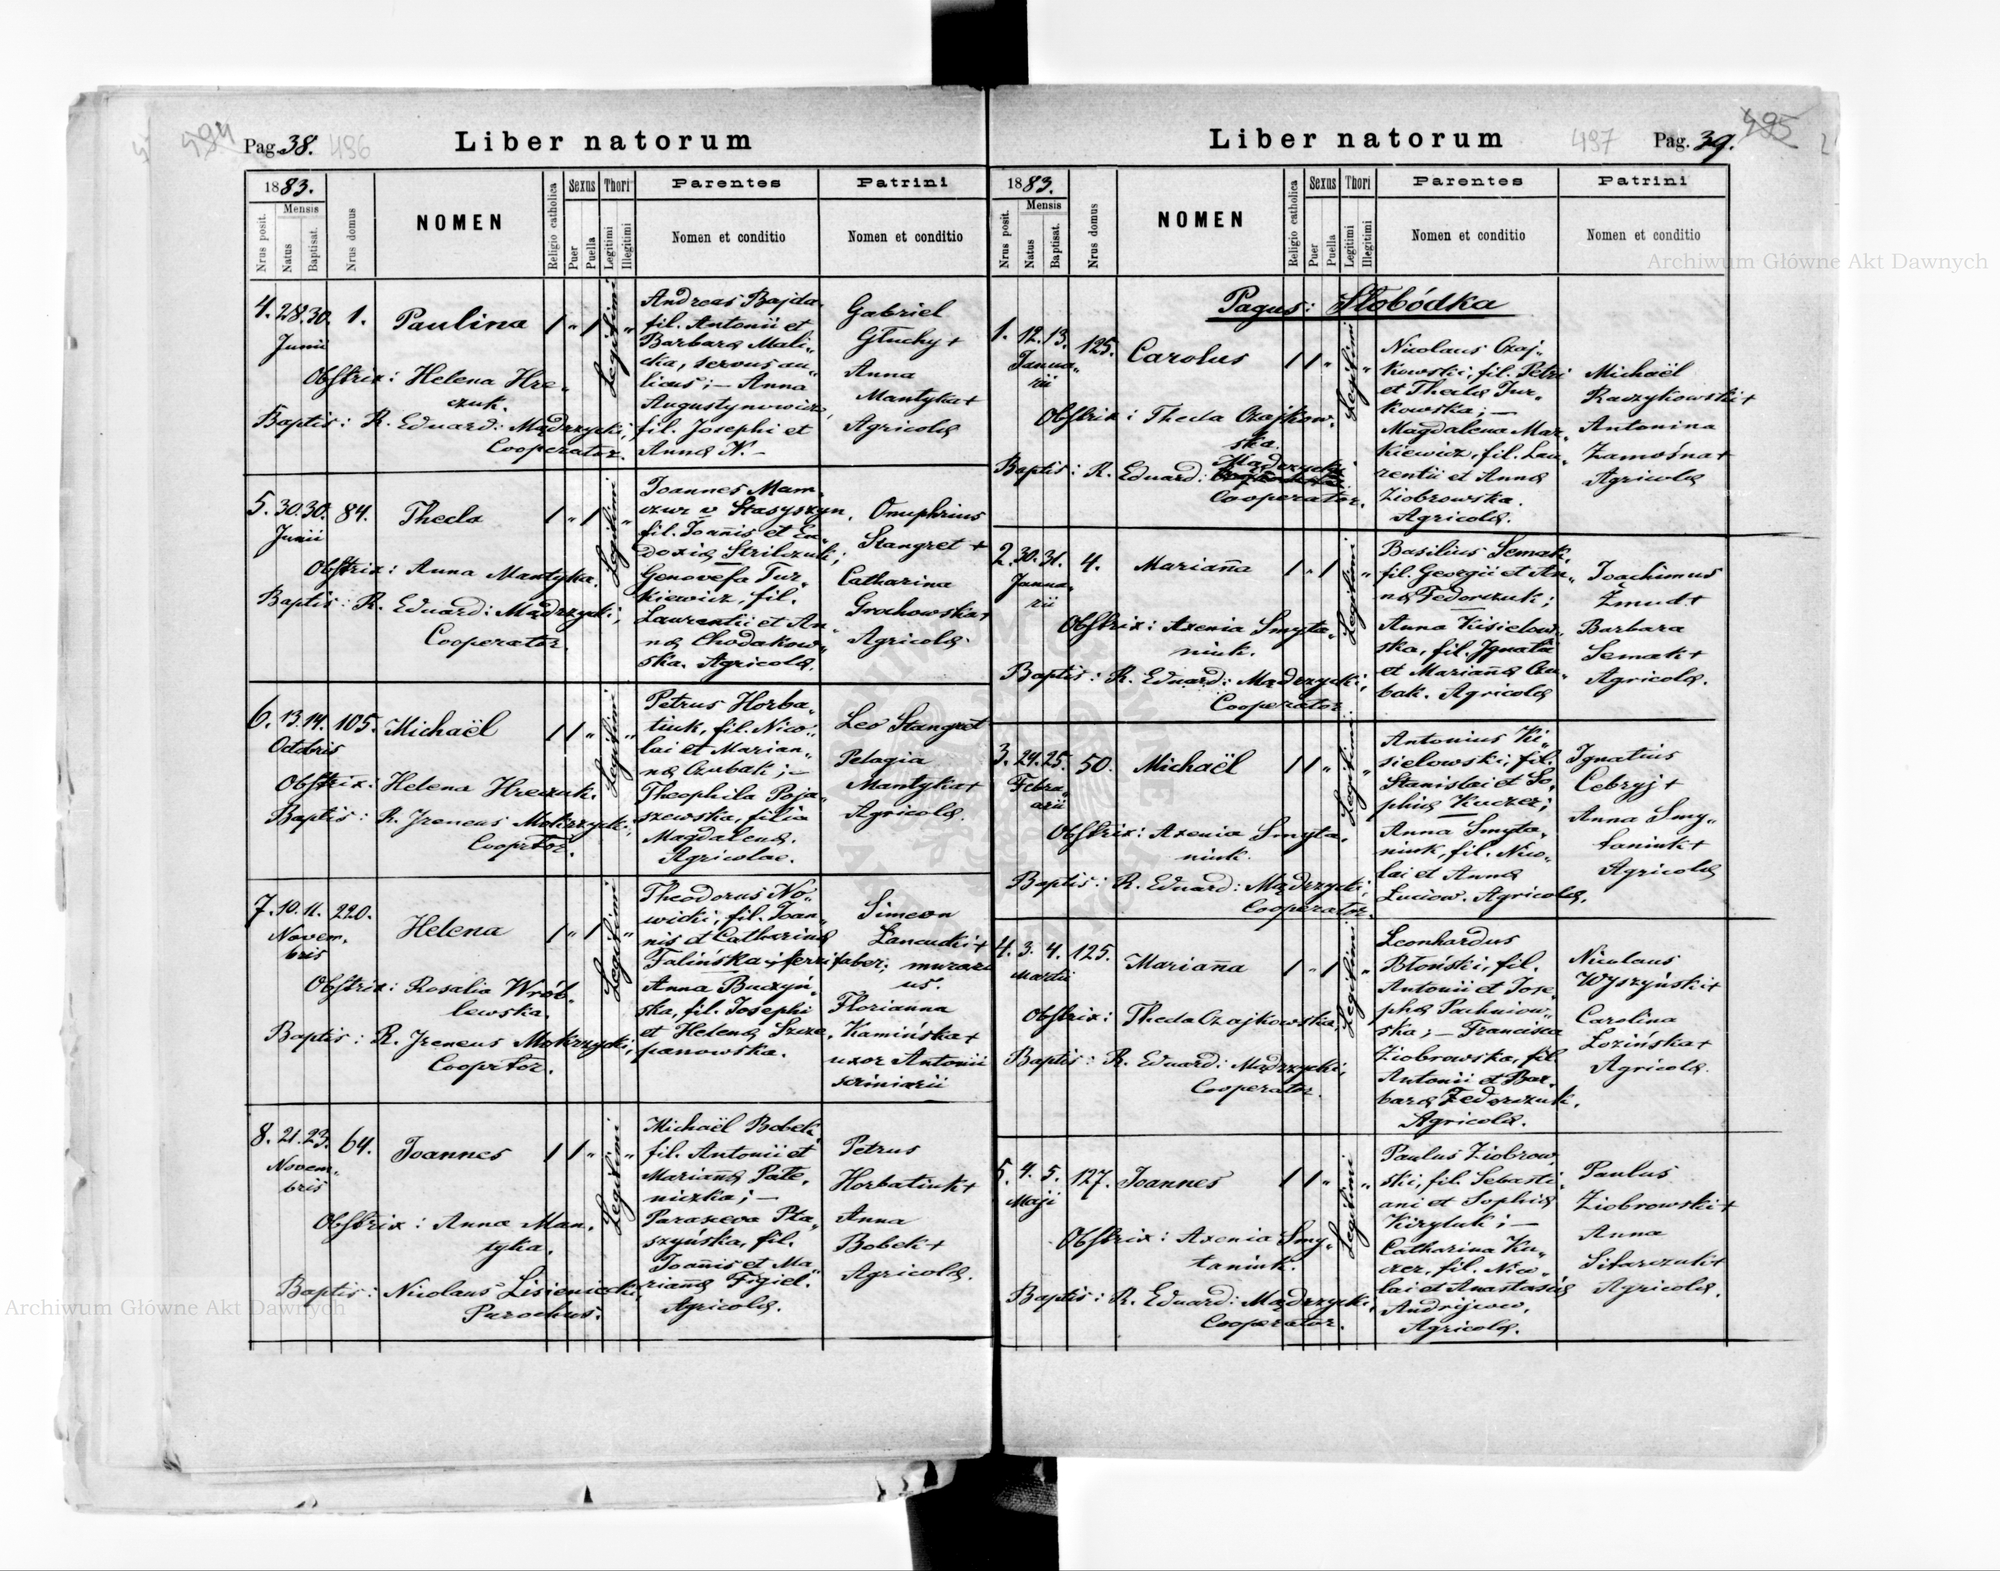 494
Pag. 38. 496
Liber natorum
1883.
Mensis
Nrus posit.
Natus
Baptisat.
Nrus domus
NOMEN
Religio catholica
Sexus
Puer
Puella
Thori
Legitimi
Illegitimi
Parentes
Nomen et conditio
Patrini
Nomen et conditio
4. 28. 30. 1. Paulina / „ / Legitimi „
Junii
Obstrix: Helena Hre„
czuk.
Baptis: R. Eduard: Mądrzycki,
Cooperator.
Andreas Bajda
fil. Antonii et
Barbara Mali„
cka, servus au„
licus; — Anna
Augustynowicz,
fil. Josephi et
Anna N. —
Gabriel
Głuchy +
Anna
Mantyka +
Agricolæ
5. 30. 30. 84. Thecla / „ / Legitimi „
Junii
Obstrix: Anna Mantyka.
Baptis: R. Eduard: Mądrzycki,
Cooperator.
Joannes Mam„
czur v Stasyszyn,
fil. Joannis et Eu„
doxiæ Strilczuk;
Genovefa Tur„
kiewicz, fil.
Laurentii et An„
næ Chodakow„
ska. Agricolæ.
Onuphrius
Stangret +
Catharina
Grochowska +
Agricolæ.
6. 13. 14. 105. Michaël / / „ Legitimi „
Octobris
Obstrix: Helena Hreczuk.
Baptis: R. Jreneus Mokrzycki,
Cooprtor.
Petrus Horba„
tiuk, fil. Nico„
lai et Marian„
næ Czubak; —
Theophila Poja„
szewska, filia
Magdalenæ.
Agricolae.
Leo Stangret
Pelagia
Mantyka +
Agricolæ.
7. 10. 11. 220. Helena / „ / Legitimi „
Novem„
bris
Obstrix: Rosalia Wrób„
lewska.
Baptis: R. Jreneus Mokrzycki,
Cooprtor.
Theodorus No„
wicki, fil. Joan„
nis et Catharinæ
Falińska; ferri faber;
Anna Buczyń„
ska, fil. Josephi
et Helenæ Szcze„
panowska.
Simeon
Łancucki +
murari
us.
Florianna
Kamińska +
uxor Antonii
scriniarii
8. 21. 23. 64. Joannes / / „ Legitimi „
Novem„
bris
Obstrix: Anna Man„
tyka.
Baptis: Nicolaus Lisieniecki,
Parochus.
Michaël Bobek,
fil. Antonii et
Mariannæ Pate„
niczka; —
Parasceva Pta„
szyńska, fil.
Joannis et Ma„
riannæ Figiel.
Agricolæ.
Petrus
Horbatiuk +
Anna
Bobek +
Agricolæ.
Liber natorum
497
Pag. 39.
495
1883.
Mensis
Nrus posit.
Natus
Baptisat.
Nrus domus
NOMEN
Religio catholica
Sexus
Puer
Puella
Thori
Legitimi
Illegitimi
Parentes
Nomen et conditio
Patrini
Nomen et conditio
Pagus: Słobódka
1. 12. 13. 125. Carolus / / „ Legitimi „
Janua„
rii
Obstrix: Thecla Czajkow„
ska.
Baptis: R. Eduard: Mądrzycki
Cooperator.
Nicolaus Czaj„
kowski, fil. Petri
et Theclæ Tur„
kowska; —
Magdalena Mar„
kiewicz, fil. Lau„
rentii et Annæ
Ziobrowska.
Agricolæ.
Michaël
Raczykowski +
Antonina
Zamośna +
Agricolæ
2. 30. 31. 4. Marianna / „ / Legitimi „
Janua„
rii
Obstrix: Axenia Smyta„
niuk.
Baptis: R. Eduard: Mądrzycki,
Cooperator.
Basilius Semak,
fil. Georgii et An„
næ Fedorczuk;
Anna Kisielow„
ska, fil. Jgnatii
et Mariannæ Czu„
bak. Agricolæ
Joachimus
Żmud. +
Barbara
Semak +
Agricolæ.
3. 24. 25. 50. Michaël / / „ Legitimi „
Febru„
arii
Obstrix: Axenia Smyta„
niuk.
Baptis: R. Eduard: Mądrzycki,
Cooperator.
Antonius Ki„
sielowski, fil.
Stanislai et So„
phiæ Kuczer;
Anna Smyta„
niuk, fil. Nico„
lai et Annæ
Łuciow. Agricolæ.
Ignatius
Cebryj +
Anna Smy„
taniuk +
Agricolæ
4. 3. 4. 125. Marianna / „ / Legitimi „
Martii
Obstrix: Thecla Czajkowska,
Baptis: R. Eduard: Mądrzycki,
Cooperator.
Leonhardus
Błoński, fil.
Antonii et Jose„
phæ Pachniow„
ska; — Francisca
Ziobrowska, fil.
Antonii et Bar„
baræ Fedorczuk.
Agricolæ.
Nicolaus
Wyszyński +
Carolina
Łozińska +
Agricolæ.
5. 4. 5. 127. Joannes / / „ Legitimi „
Maji
Obstrix: Axenia Smy„
taniuk.
Baptis: R. Eduard: Mądrzycki,
Cooperator.
Paulus Ziobrow„
ski, fil. Sebasti„
ani et Sophiæ
Kiryluk; —
Catharina Ku„
czer, fil. Nico„
lai et Anastasiæ
Andrijcow.
Agricolæ.
Paulus
Ziobrowski +
Anna
Sitarczuk +
Agricolæ.
Archiwum Główne Akt Dawnych
Archiwum Główne Akt Dawnych